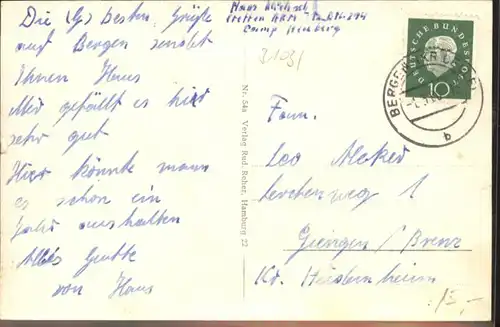 Die besten Grüße
aus Bergen sendet
Ihnen Hans
Mir gefällt es hir
sehr gut
Hir könnte mann
es schon ein
Jahr aushalten
Alles Gutte
von Hans
Hans
Camp
3103
Nr. 54a Verlag Rud. Reher, Hamburg 22
DEUTSCHE BUNDESPOST
10
BERGEN
b
Fam.
Leo
Lerchenweg 1
Giengen / Brenz
Kr. Heidenheim